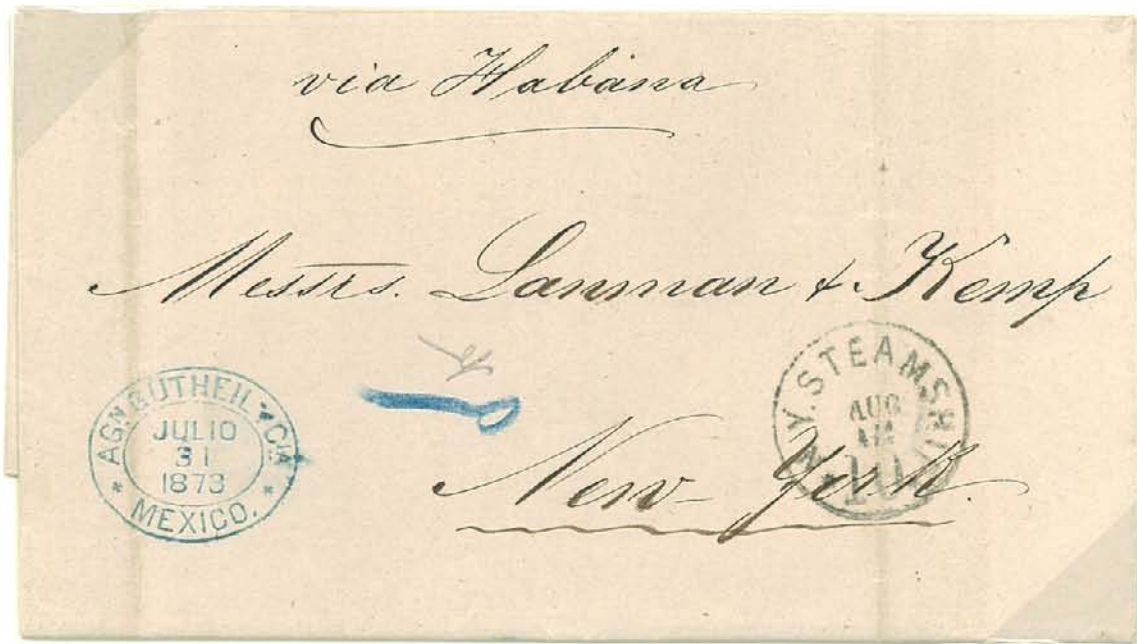 via Habána
Messrs. Lanman & Kemp
New-York.
AGN. GUTHEIL Y CIA
JULIO
31
1873
* MEXICO. *
N.Y. STEAMSHIP
AUG
10